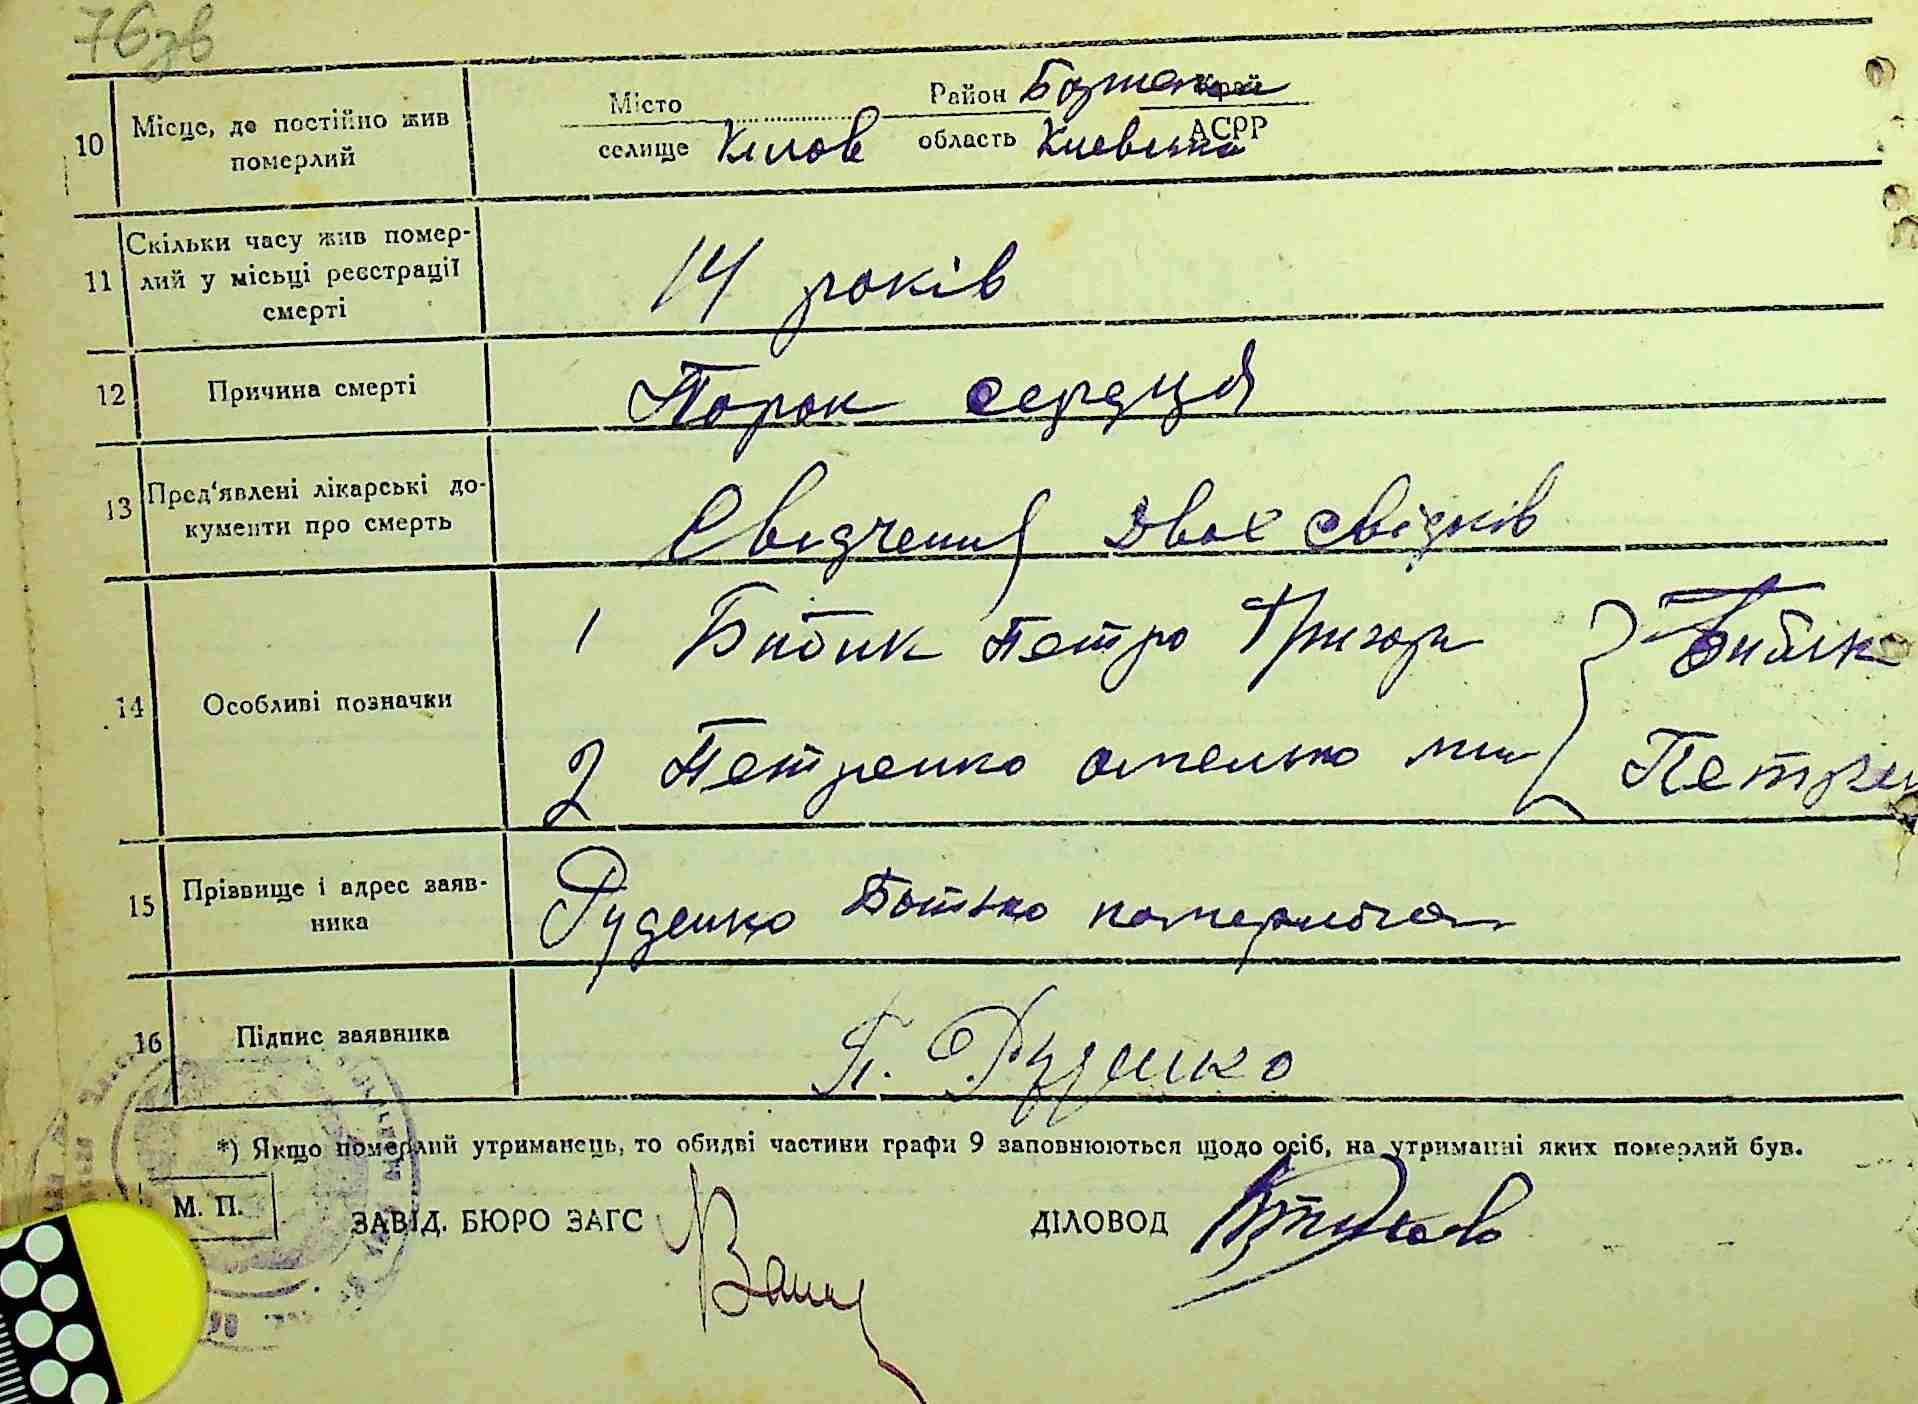 76зв
10 Місце, де постійно жив померлий
Місто Район Край
селище область Киевська АСРР
11 Скільки часу жив помер-
лий у місьці реєстрації
смерті
14 років
12 Причина смерті Порок сердця
13 Пред'явлені лікарські до-
кументи про смерть
Свідчення Двох свідків
14 Особливі позначки
1 Бибик Петро Григори Бибик
2 Петренко омелько Петрен
15 Прізвище і адрес заяв-
ника
Руденко Батько померлого
16 Підпис заявника П. Руденко
*) Якщо померлий утриманець, то обидві частини графи 9 заповнюються щодо осіб, на утриманні яких померлий був.
М. П.
ЗАВІД. БЮРО ЗАГС ДІЛОВОД